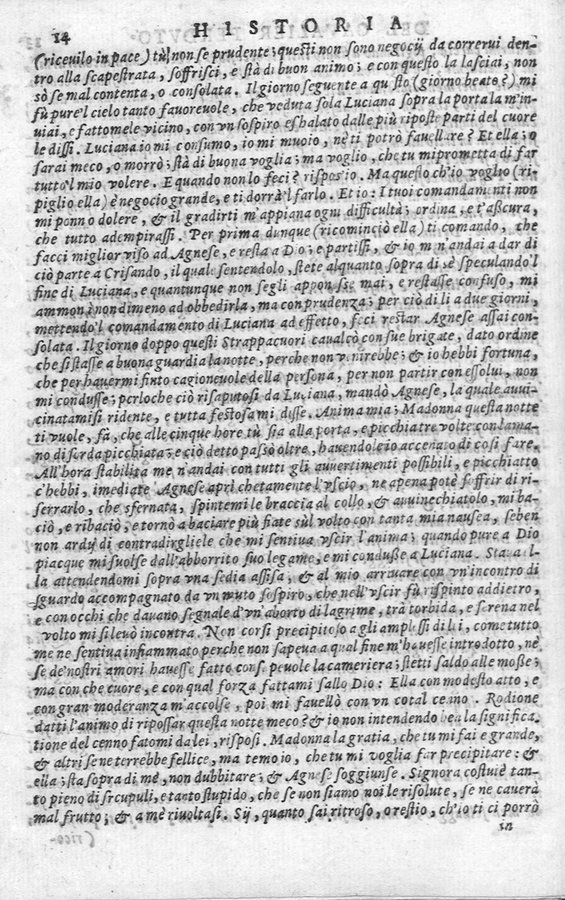 14 HISTORIA
(ricevilo in pace) tù non se prudente; questi non sono negocij da correrui den-
tro alla scapestrata, soffrisci, e stà di buon animo; e con questo la lasciai, non
sò se mal contenta, o consolata. Il giorno seguente a qu sto (giorno beato?) mi
fù pure'l cielo tanto fauoreuole, che veduta sola Luciana sopra la porta la m'in-
uiai, e fattomele vicino, con vn sospiro eshalato dalle più riposte parti del cuore
le dissi. Luciana io mi consumo, io mi muoio, nè ti potrò fauellare? Et ella; o
sarai meco, o morrò; stà di buona voglia; ma voglio, che tu mi prometta di far
tutto'l mio volere. E quando non lo feci? risposi io. Ma questo ch'io voglio (ri-
piglio ella) è negocio grande, e ti dorrà'l farlo. Et io: I tuoi comandamenti non
mi ponno dolere, & il gradirti m'appiana ogni difficultà; ordina, e t'assicura,
che tutto adempirassi. Per prima dunque (ricominciò ella) ti comando, che
facci miglior viso ad Agnese, e resta a Dio; e partissi, & io m'n'andai a dar di
ciò parte a Crisando, il quale sentendolo, stete alquanto sopra di sè speculando'l
fine di Luciana, e quantunque non segli apponesse mai, e restasse confuso, mi
ammonì nondimeno ad obbedirla, ma con prudenza; per ciò di lì a due giorni,
mettendo'l comandamento di Luciana ad effetto, feci restar Agnese assai con-
solata. Il giorno doppo questi Strappacuori caualcò con sue brigate, dato ordine
che si stasse a buona guardia la notte, perche non venirebbe; & io hebbi fortuna,
che per hauermi finto cagioneuole della persona, per non partir con essolui, non
mi condusse; perloche ciò risaputosi da Luciana, mandò Agnese, la quale auui-
cinatamisi ridente, e tutta festosa mi disse. Anima mia; Madonna questa notte
ti vuole, fà, che alle cinque hore tù sia alla porta, e picchia tre volte con la ma-
no di sorda picchiata; e ciò detto passò oltre, hauendole io accenato di così fare.
All'hora stabilita me n'andai con tutti gli auuertimenti possibili, e picchiato
c'hebbi, imediate Agnese aprì chetamente l'vscio, ne apena potè soffrir di ri-
serrarlo, che sfernata, spintemi le braccia al collo, & auuinechiatolo, mi ba-
ciò, e ribaciò, e tornò a baciare più fiate sùl volto con tanta mia nausea, seben
non ardij di contradirgliele che mi sentiua vscir l'anima; quando pure a Dio
piacque mi suolse dall'abborrito suo legame, e mi condusse a Luciana. Staua el-
la attendendomi sopra vna sedia assisa, & al mio arriuare con vn'incontro di
sguardo accompagnato da vn muto sospiro, che nell'vscir fù rispinto addietro,
e con occhi che dauano segnale d'vn'aborto di lagrime, trà torbida, e serena nel
volto mi si leuò incontra. Non corsi precipitoso a gli amplessi di lei, come tutto
me ne sentiua infiammato perche non sapeua a qual fine m'hauesse introdotto, nè
se de'nostri amori hauesse fatto consapeuole la cameriera; stetti saldo alle mosse;
ma con che cuore, e con qual forza fattami sallo Dio: Ella con modesto atto, e
con gran moderanza m'accolse, poi mi fauellò con vn cotal cenno. Rodione
datti l'animo di ripossar questa notte meco? & io non intendendo bea la significa-
tione del cenno fatomi da lei, risposi. Madonna la gratia, che tu mi fai e grande,
& altri se ne terrebbe fellice, ma temo io, che tu mi voglia far precipitare: &
ella; sta sopra di mè, non dubbitare; & Agnese soggiunse. Signora costui è tan-
to pieno di srcupuli, e tanto stupido, che se non siamo noi le risolute, se ne cauerà
mal frutto; & a me riuoltasi. Sij, quanto sai ritroso, o restio, ch'io ti ci porrò
in